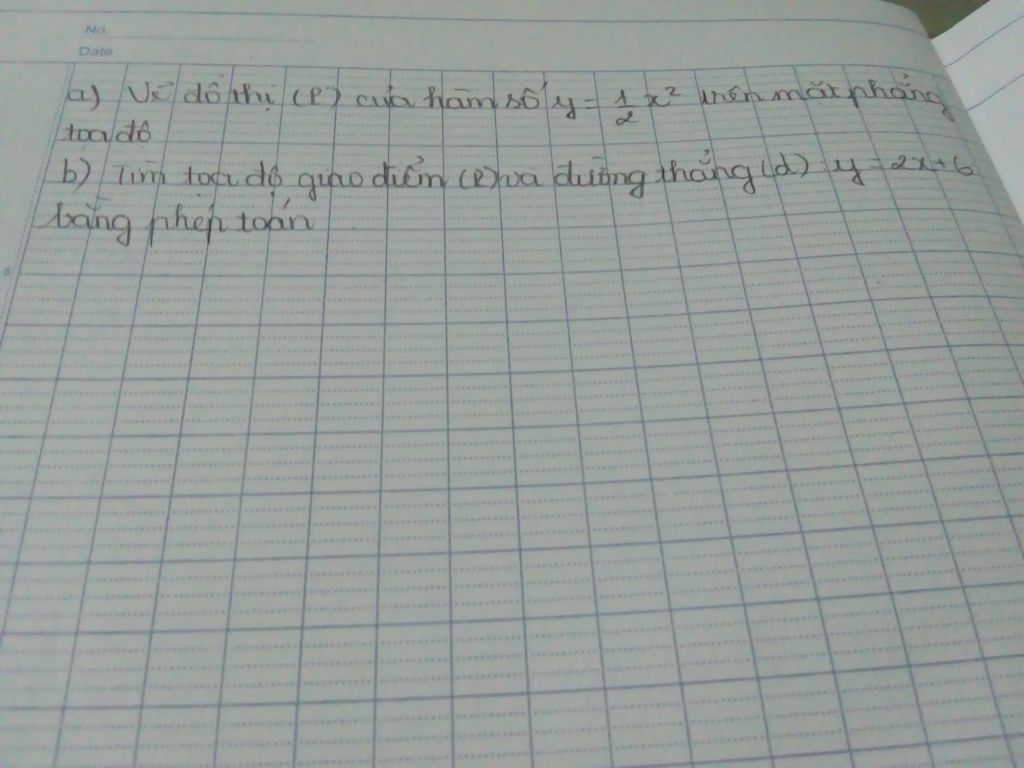 No.
Date
a) Vẽ đồ thị (P) của hàm số y = 1/2 x² trên mặt phẳng
toạ độ
b) Tìm tọa độ giao điểm (P) và đường thẳng (d) y = 2x+6
bằng phép toán